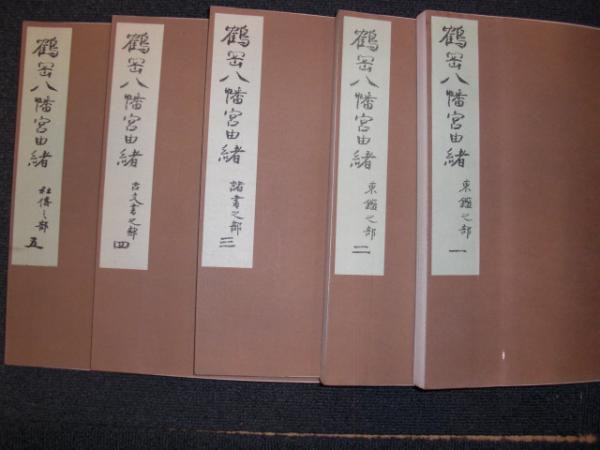 鶴岡八幡宮由緒
東鑑之部 一
鶴岡八幡宮由緒
東鑑之部 二
鶴岡八幡宮由緒
諸書之部 三
鶴岡八幡宮由緒
古文書之部 四
鶴岡八幡宮由緒
社傳之部 五